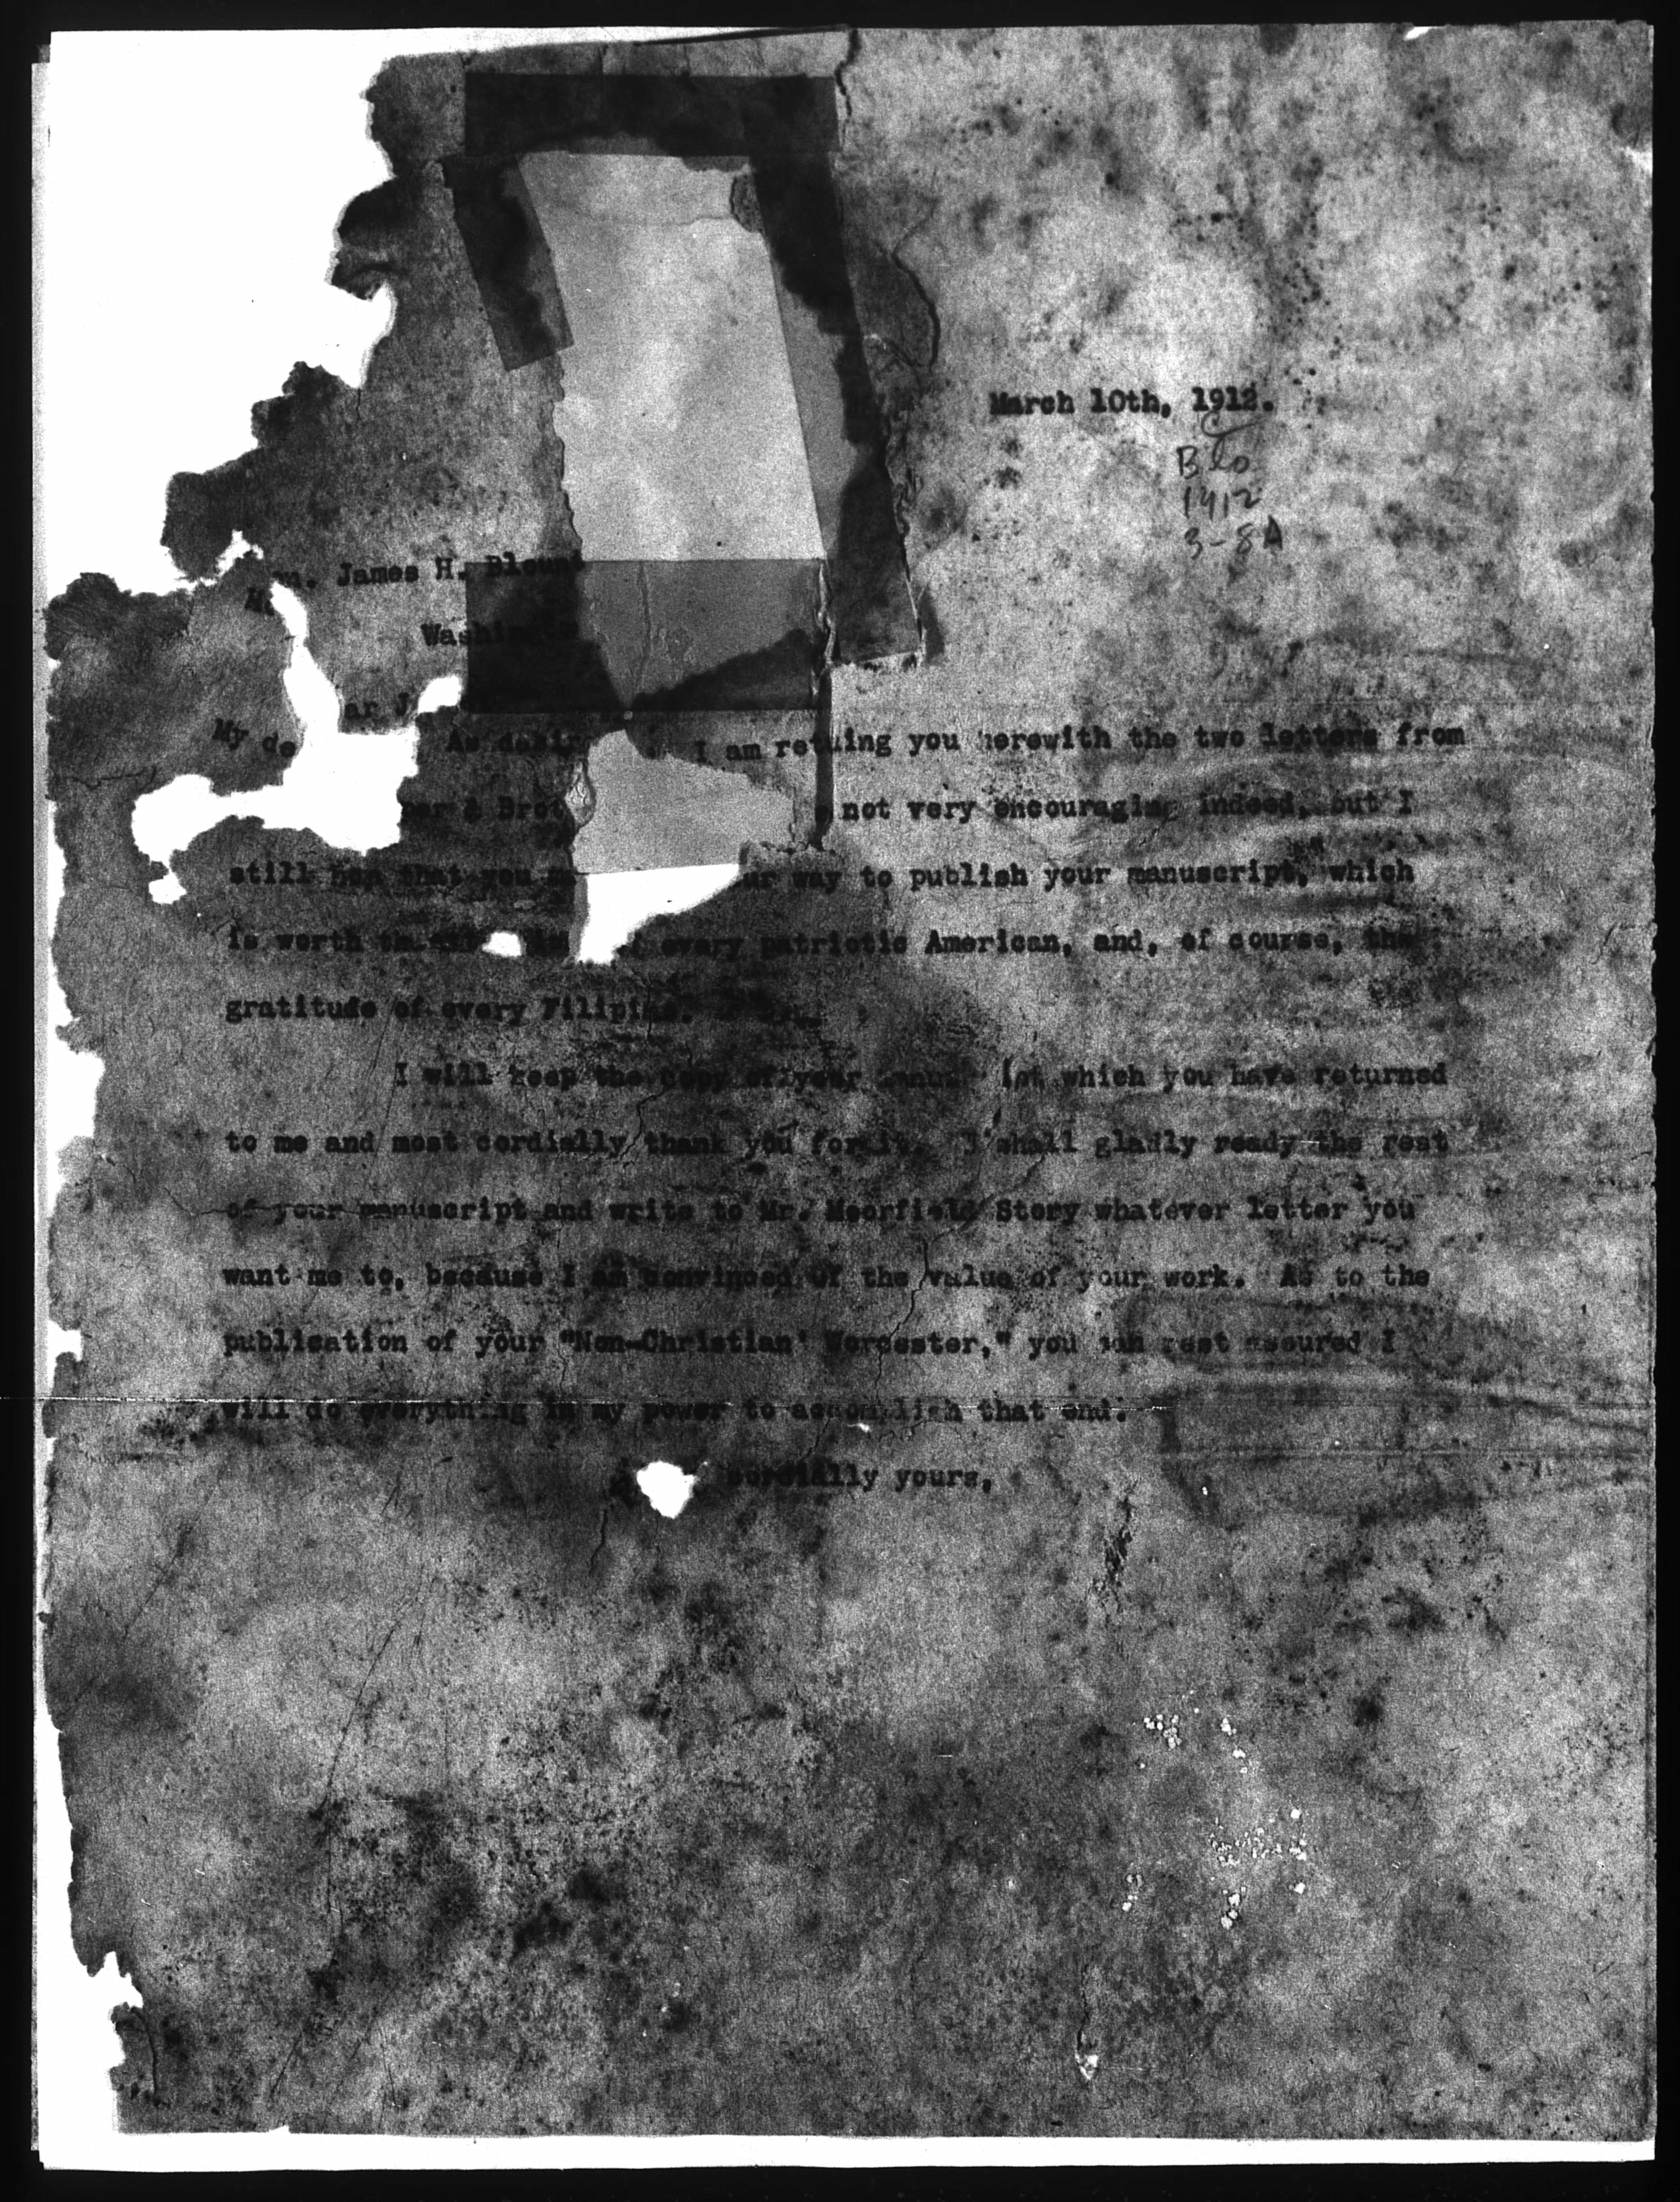 March 10th, 1912.
1912
3-8A
James H. Blount
My de ar
As I am retuing you herewith the two letters from
& not very encouraging indeed, but I
still hop that you way to publish your manuscript, which
is worth every patriotic American, and, of course, the
gratitude of every Filipino.
I will keep the copy of your which you have returned
to me and most cordially thank you for it. I shall gladly ready the rest
of your manuscript and write to Mr. Moorfield Story whatever letter you
want me to, because I am convinced of the value of your work. As to the
publication of your "Non-Christian' Worcester," you can rest assured I
will do everything in my power to accomplish that end.
Cordially yours,